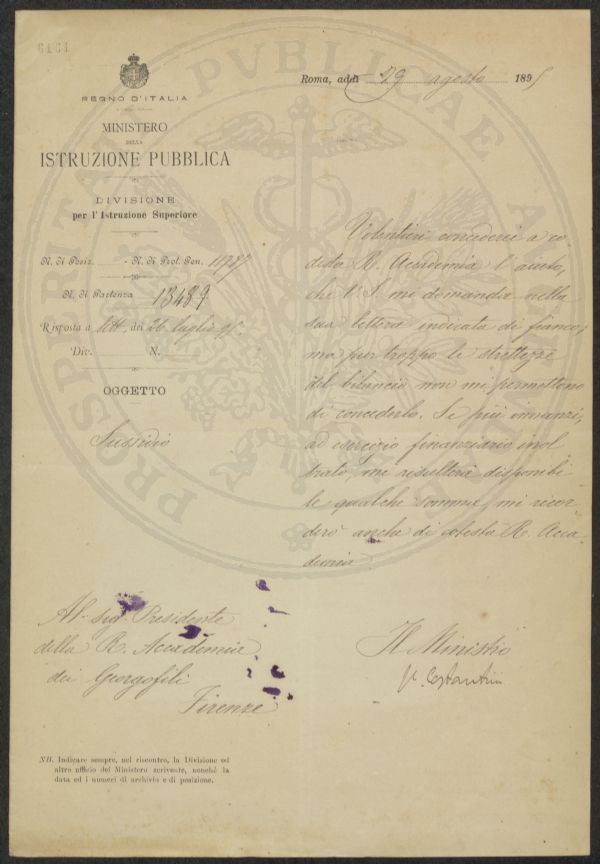 6464
REGNO D'ITALIA
MINISTERO
DELLA
ISTRUZIONE PUBBLICA
DIVISIONE
per l'Istruzione Superiore
N. di Posiz. - N. di Prot. Gen.
N. di Partenza 13489
Risposta a del 26 luglio 95
Div. N.
OGGETTO
Sussidio
Roma, addì 29 agosto 1895
Volentieri concederei a co-
desta R. Accademia l'aiuto,
che V. S. mi domanda nella
sua lettera indicata di fianco;
ma pur troppo le strettezze
del bilancio non mi permettono
di concederlo. Se più innanzi,
ad esercizio finanziario inol
trato, mi risulterà disponibi
le qualche somma, mi ricor-
derò anche di codesta R. Acca-
demia
Al Sig. Presidente
della R. Accademia
dei Georgofili
Firenze
Il Ministro
Costantini
NB. Indicare sempre, nel riscontro, la Divisione od
altro ufficio del Ministero scrivente, nonchè la
data ed i numeri di archivio e di posizione.
PROSPERITATI PVBLICAE